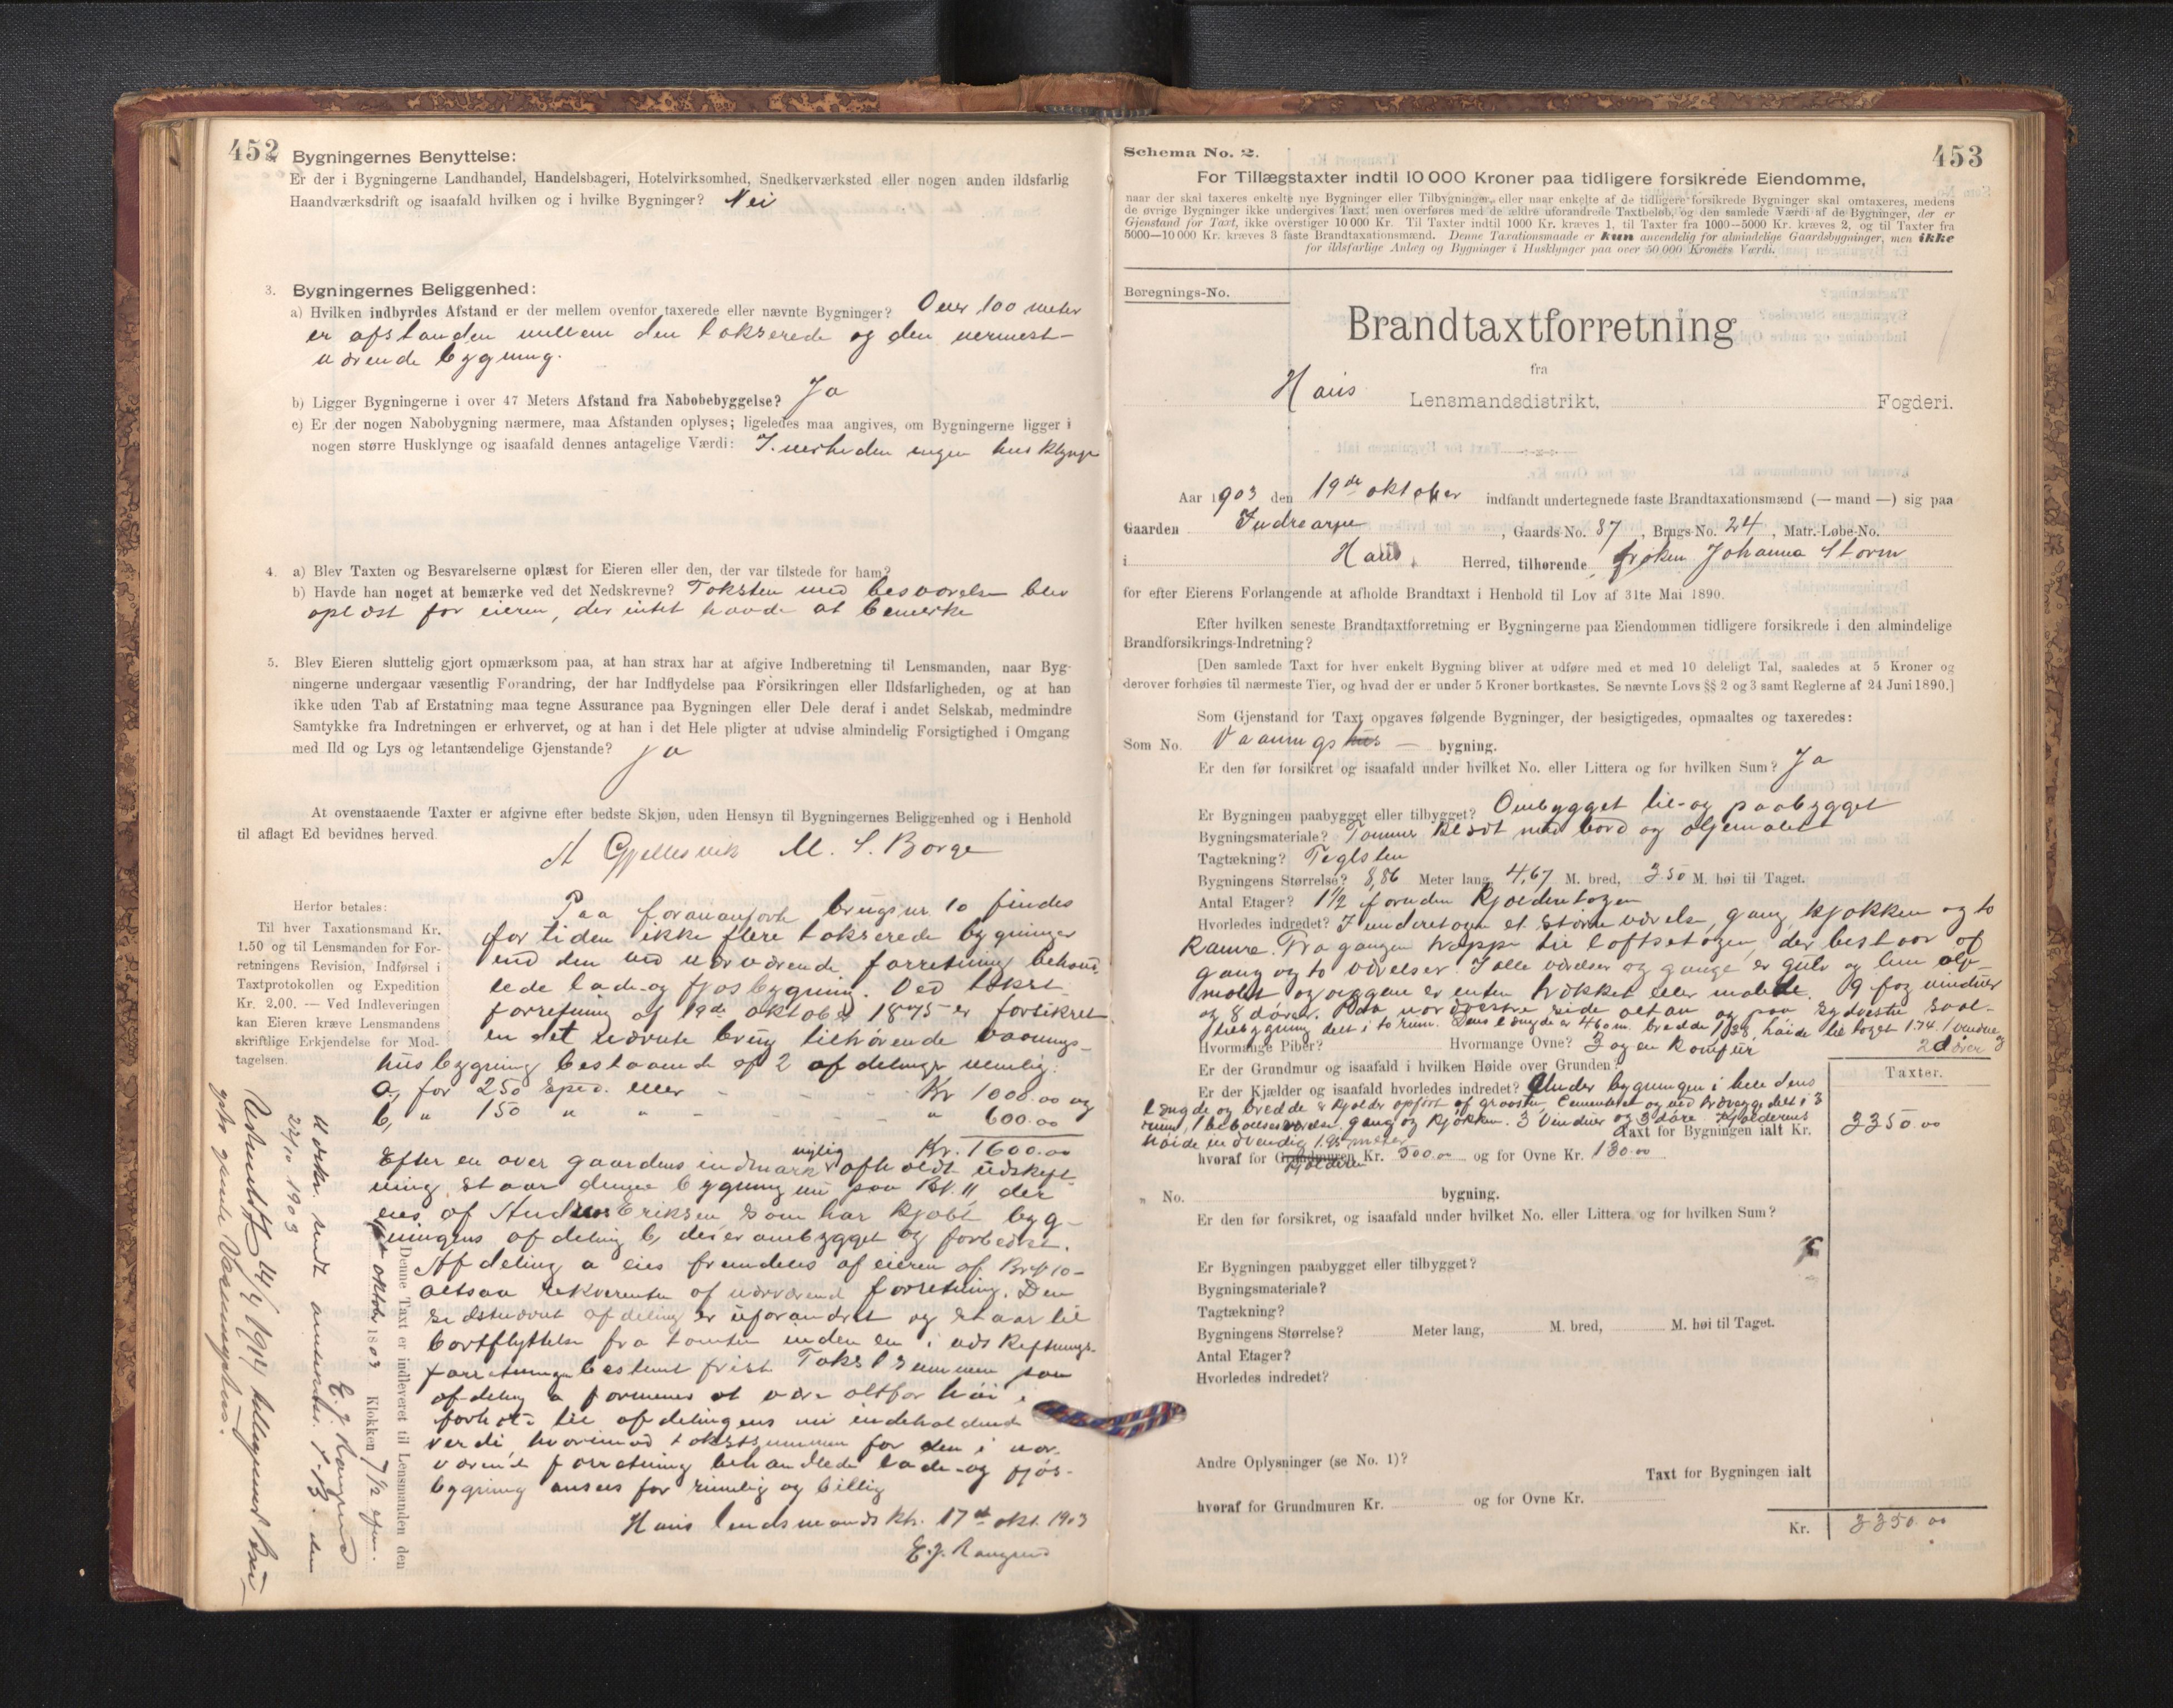 452
Bygningernes Benyttelse:
Er der i Bygningerne Landhandel, Handelsbageri, Hotelvirksomhed, Snedkerværksted eller nogen anden ildsfarlig
Haandværksdrift og isaafald hvilken og i hvilke Bygninger? Nei
3. Bygningernes Beliggenhed:
a) Hvilken indbyrdes Afstand er der mellem ovenfor taxerede eller nævnte Bygninger? Over 100 meter
er afstanden mellem den takserede og den nermest-
værende bygning.
b) Ligger Bygningerne i over 47 Meters Afstand fra Nabobebyggelse? Ja
c) Er der nogen Nabobygning nærmere, maa Afstanden oplyses; ligeledes maa angives, om Bygningerne ligger i
nogen større Husklynge og isaafald dennes antagelige Værdi: I nerheden ingen husklynge
4. a) Blev Taxten og Besvarelserne oplæst for Eieren eller den, der var tilstede for ham?
b) Havde han noget at bemærke ved det Nedskrevne? Taksten med besvarelse blev
oplæst for eieren, der intet havde at bemerke
5. Blev Eieren sluttelig gjort opmærksom paa, at han strax har at afgive Indberetning til Lensmanden, naar Byg-
ningerne undergaar væsentlig Forandring, der har Indflydelse paa Forsikringen eller Ildsfarligheden, og at han
ikke uden Tab af Erstatning maa tegne Assurance paa Bygningen eller Dele deraf i andet Selskab, medmindre
Samtykke fra Indretningen er erhvervet, og at han i det Hele pligter at udvise almindelig Forsigtighed i Omgang
med Ild og Lys og letantændelige Gjenstande? Ja
At ovenstaaende Taxter er afgivne efter bedste Skjøn, uden Hensyn til Bygningernes Beliggenhed og i Henhold
til aflagt Ed bevidnes herved.
A Gjellesvik M. S. Borge
Herfor betales:
Til hver Taxationsmand Kr.
1.50 og til Lensmanden for For-
retningens Revision, Indførsel i
Taxtprotokollen og Expedition
Kr. 2,00. — Ved Indleveringen
kan Eieren kræve Lensmandens
skriftlige Erkjendelse for Mod-
tagelsen.
Paa forananførte brugsnr 10 findes
for tiden ikke flere takserede bygninger
end den ved nærværende forretning behand-
lede lade og fjøsbygning. Ved takst-
forretning af 19de oktober 1875 er forsikret
en det nævnte brug tilhørende vaanings-
husbygning bestaaende af 2 afdelinger nemlig:
a, for 250 Sped. eller - - - Kr 1000.00 og
b, " 150 " " - - - " 600.00
Kr. 1600.00
Efter en over gaardens indmark nylig afholdt udskift-
ning staar denne bygning nu paa Br. 11, der
eies af Anders Eriksen, som har kjøbt byg-
ningens afdeling b, der er ombygget og forbedret.
Afdeling a eies fremdeles af eieren af Br 10 -
altsaa rekvirenten af nærværende forretning. Den
sidstnævnte afdeling er uforandret og staar til
bortflyttelse fra tomten inden en i udskiftnings-
forretningen bestemt frist. Takstsummen paa
afdeling a formenes at være altfor høi i
forhold til afdelingens nu indeholdende
verdi, hvorimod takstsummen for den i nær-
værende forretning behandlede lade og fjøs-
bygning ansees for rimelig og billig
Haus lendsmandskt. 17de okt. 1903
E. J. Raugund
Denne Taxt er indleveret til Lensmanden den
oktober 1903 Klokken 7 1/2 efm.
E. J. Raugund
22/10 1903
453
Schema No. 2.
For Tillægstaxter indtil 10 000 Kroner paa tidligere forsikrede Eiendomme,
naar der skal taxeres enkelte nye Bygninger eller Tilbygninger, eller naar enkelte af de tidligere forsikrede Bygninger skal omtaxeres, medens
de øvrige Bygninger ikke undergives Taxt, men overføres med de ældre uforandrede Taxtbeløb, og den samlede Værdi af de Bygninger, der er
Gjenstand for Taxt, ikke overstiger 10 000 Kr. Til Taxter indtil 1000 Kr. kræves 1, til Taxter fra 1000—5000 Kr. kræves 2, og til Taxter fra
5000—10 000 Kr. kræves 3 faste Brandtaxationsmænd. Denne Taxationsmaade er kun anvendelig for almindelige Gaardsbygninger, men ikke
for ildsfarlige Anlæg og Bygninger i Husklynger paa over 50 000 Kroners Værdi.
Beregnings-No.
Brandtaxtforretning
fra
Haus Lensmandsdistrikt, Fogderi.
Aar 1903 den 19de oktober indfandt undertegnede faste Brandtaxationsmænd (— mand —) sig paa
Gaarden Indrearne, Gaards-No. 87, Brugs-No. 24, Matr.-Løbe-No.
i Haus Herred, tilhørende frøken Johanna Storm
for efter Eierens Forlangende at afholde Brandtaxt i Henhold til Lov af 31te Mai 1890.
Efter hvilken seneste Brandtaxtforretning er Bygningerne paa Eiendommen tidligere forsikrede i den almindelige
Brandforsikrings-Indretning?
[Den samlede Taxt for hver enkelt Bygning bliver at udføre med et med 10 deleligt Tal, saaledes at 5 Kroner og
derover forhøies til nærmeste Tier, og hvad der er under 5 Kroner bortkastes. Se nævnte Lovs §§ 2 og 3 samt Reglerne af 24 Juni 1890.]
Som Gjenstand for Taxt opgaves følgende Bygninger, der besigtigedes, opmaaltes og taxeredes:
Som No. Vaaningshus — bygning.
Er den før forsikret og isaafald under hvilket No. eller Littera og for hvilken Sum? Ja
Er Bygningen paabygget eller tilbygget? Ombygget til- og paabygget
Bygningsmateriale? Tømmer klædt med bord og oljemalet
Tagtækning? Teglsten
Bygningens Størrelse? 8,86 Meter lang, 4,67 M. bred, 3.50 M. høi til Taget.
Antal Etager? 1 1/2 foruden kjelderetagen
Hvorledes indredet? I underetagen et større værelse, gang, kjøkken og to
kamre. Fra gangen trappe til loftsetagen, der bestaar af
gang og to værelser. I alle værelser og gange er gulv og lem olje-
malet og væggene er enten trækket eller malede. 9 fag vinduer
og 8 døre. Paa nordvestre side altan og paa sydvestre
tilbygning delt i to rum. Dens længde er 4.60 m. bredde 1.28, høide til taget 1.74. 1 vindue og
Hvormange Piber? Hvormange Ovne? 3 og en komfur 2 døre
Er der Grundmur og isaafald i hvilken Høide over Grunden?
Er der Kjælder og isaafald hvorledes indredet? Under bygningen i hele dens
længde og bredde er kjelder opført af graasten, cementeret og ved trævægge delt i 3
rum, 1 beboelsesværelse, gang og kjøkken. 3 Vinduer og 3 døre. Kjelderens
høide indvendig 1.95 meter
Taxter.
Taxt for Bygningen ialt Kr. 3350.00
hvoraf for Grundmuren Kjelderen Kr. 500.00 og for Ovne Kr. 130.00
" No. bygning.
Er den før forsikret, og isaafald under hvilket No. eller Littera og for hvilken Sum?
Er Bygningen paabygget eller tilbygget?
Bygningsmateriale?
Tagtækning?
Bygningens Størrelse? Meter lang, M. bred, M. høi til Taget.
Antal Etager?
Hvorledes indredet?
Andre Oplysninger (se No. 1)?
Taxt for Bygningen ialt
hvoraf for Grundmuren Kr. og for Ovne Kr.
Kr. 3350.00